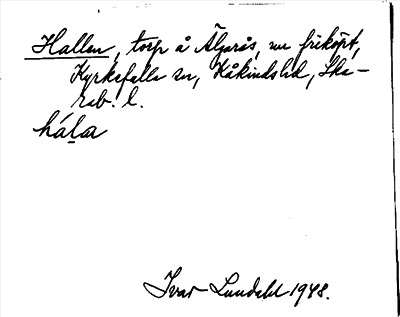 Hallen, torp å Älgarås, nu friköpt,
Kyrkefalla sn, Kåkinds hd, Ska-
rab. l.
hála
Ivar Lundahl 1948.